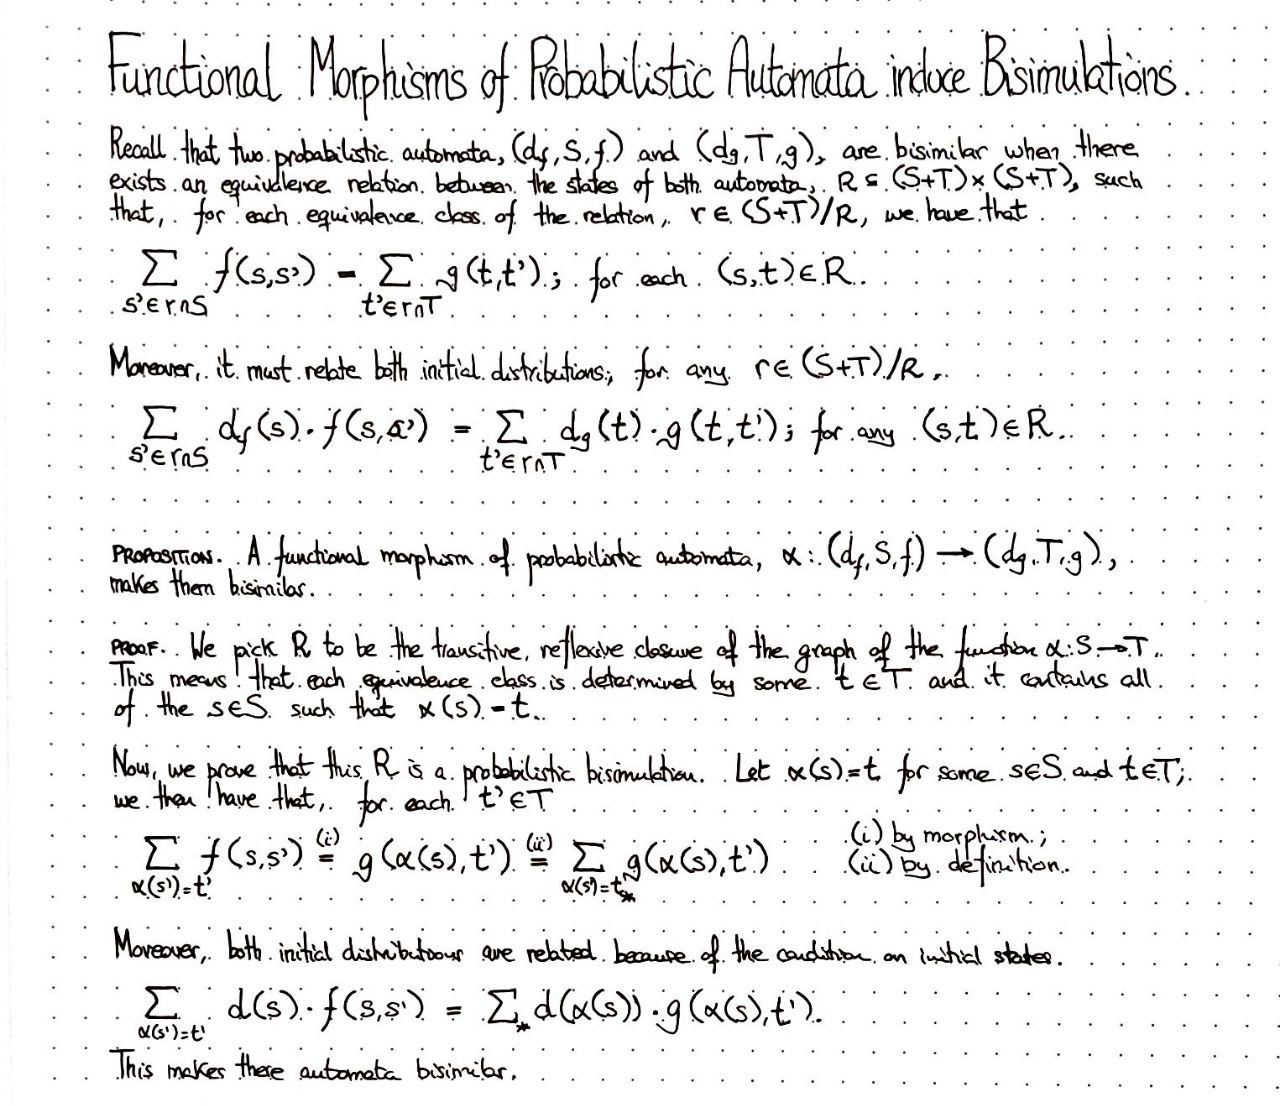 Functional Morphisms of Probabilistic Automata induce Bisimulations.
Recall that two probabilistic automata, (d_f, S, f) and (d_g, T, g), are bisimilar when there
exists an equivalence relation between the states of both automata, R ⊆ (S+T) × (S+T), such
that, for each equivalence class of the relation, r ∈ (S+T)/R, we have that
∑ f(s,s') = ∑ g(t,t'); for each (s,t) ∈ R.
s'∈r∩S t'∈r∩T
Moreover, it must relate both initial distributions; for any r ∈ (S+T)/R,
∑ d_f(s) · f(s,s') = ∑ d_g(t) · g(t,t'); for any (s,t) ∈ R.
s'∈r∩S t'∈r∩T
PROPOSITION. A functional morphism of probabilistic automata, α : (d_f, S, f) → (d_g, T, g),
makes them bisimilar.
PROOF. We pick R to be the transitive, reflexive closure of the graph of the function α : S → T.
This means that each equivalence class is determined by some t ∈ T and it contains all
of the s∈S such that α(s) = t.
Now, we prove that this R is a probabilistic bisimulation. Let α(s)=t for some s∈S and t∈T;
we then have that, for each t'∈T
∑ f(s,s') (i)= g(α(s),t') (ii)= ∑ g(α(s),t') (i) by morphism;
α(s')=t' α(s')=t_* (ii) by definition.
Moreover, both initial distributions are related because of the condition on initial states.
∑ d(s) · f(s,s') = ∑_* d(α(s)) · g(α(s),t').
α(s')=t'
This makes these automata bisimilar.